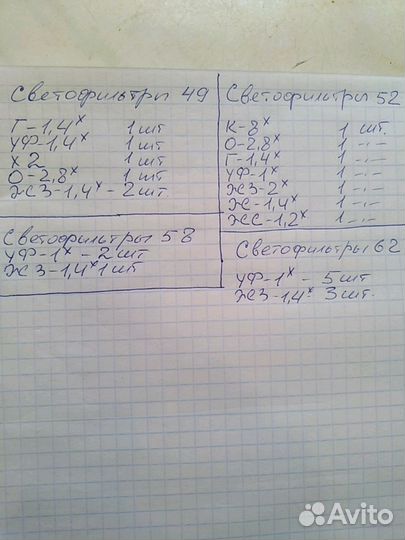 Светофильтры 49
Г-1,4х 1 шт
УФ-1,4х 1 шт
х 2 1 шт
О-2,8х 1 шт
ЖЗ-1,4х - 2 шт
Светофильтры 52
К-8х 1 шт.
О-2,8х 1 -,-
Г-1,4х 1 -,-
УФ-1х 1 -,-
ЖЗ-2х 1 -,-
Ж-1,4х 1 -,-
ЖС-1,2х 1 -,-
Светофильтры 58
УФ-1х - 2 шт
ЖЗ-1,4х 1 шт
Светофильтры 62
УФ-1х - 5 шт
ЖЗ-1,4х 3 шт.
Avito